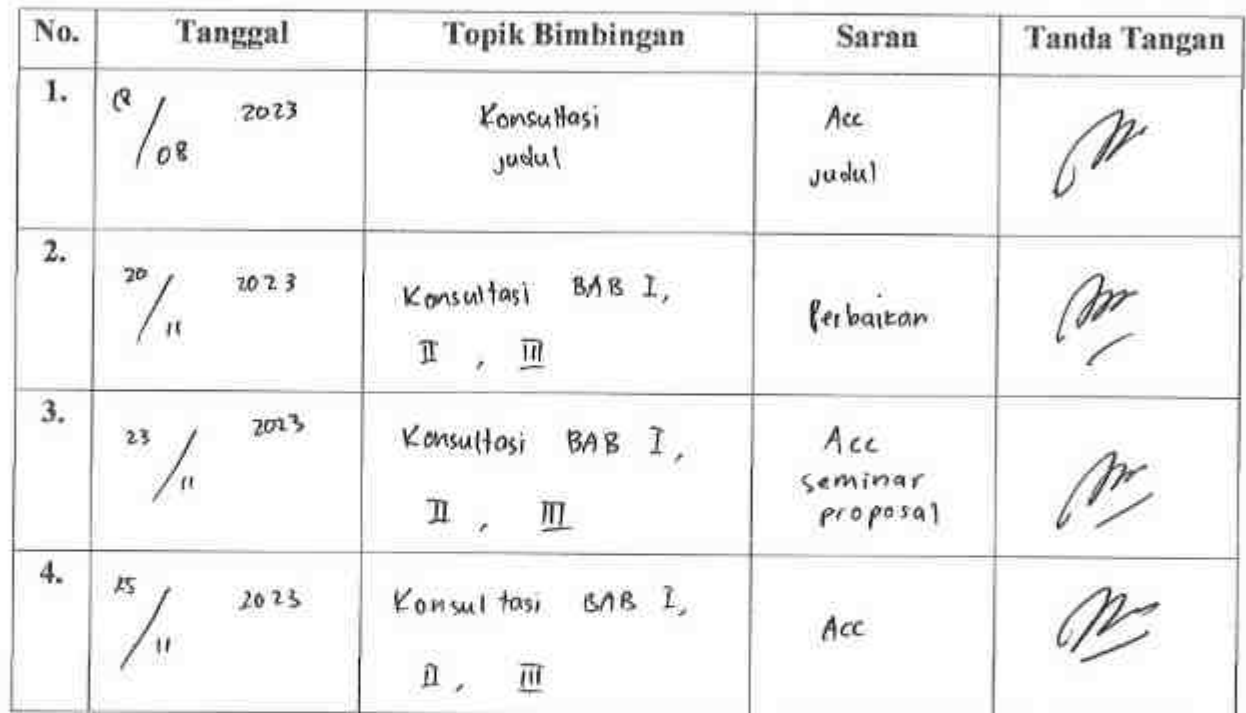 No. Tanggal Topik Bimbingan Saran Tanda Tangan
1. /08 2023 Konsultasi judul Acc judul
2. 20/11 2023 Konsultasi BAB I, II, III Perbaikan
3. 23/11 2023 Konsultasi BAB I, II, III Acc seminar proposal
4. 25/11 2023 Konsultasi BAB I, II, III Acc